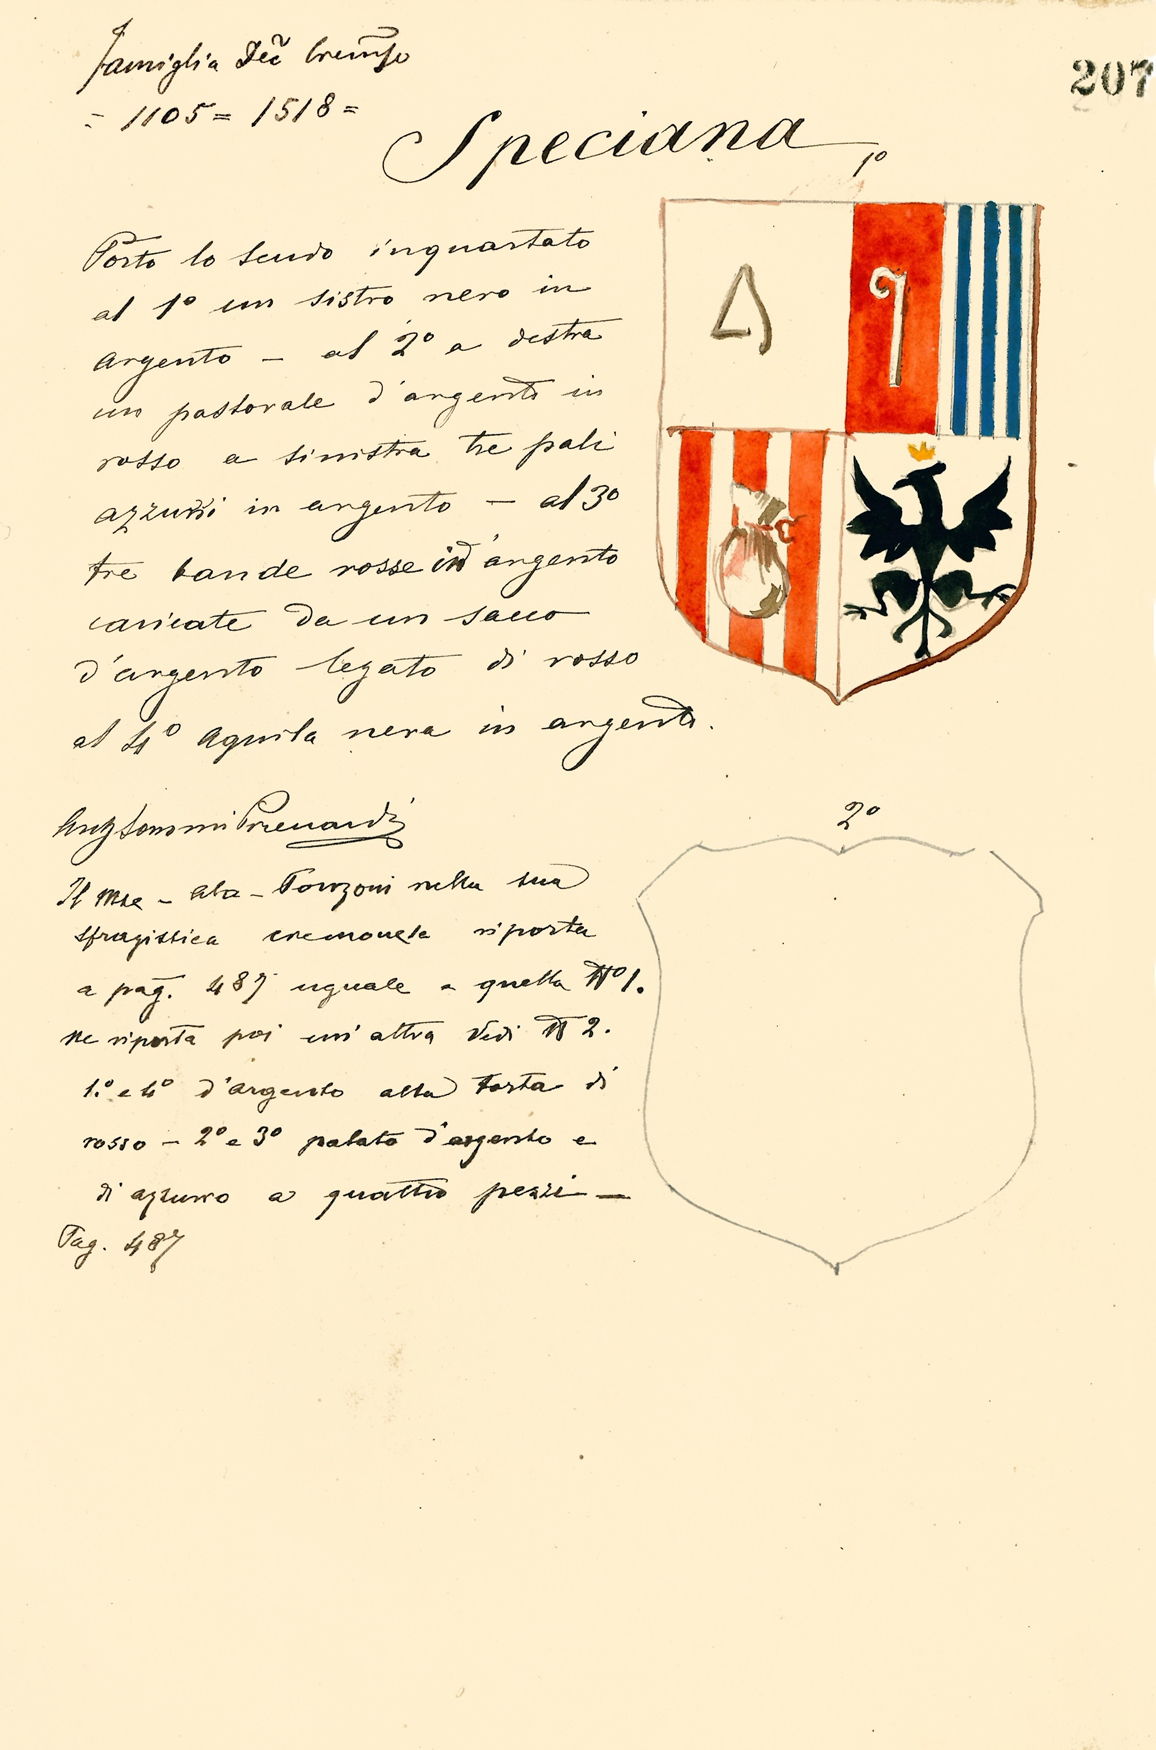 207
Famiglia Dec̃ Crem̃se
= 1105 = 1518 =
Speciana
1º
Porta lo scudo inquartato
al 1º un sistro nero in
argento - al 2º a destra
un pastorale d'argento in
rosso a sinistra tre pali
azzurri in argento - al 3º
tre bande rosse in d'argento
caricate da un sacco
d'argento legato di rosso
al 4º aquila nera in argento.
Sommi Picenardi
2º
Il Mse - Ala - Ponzoni nella sua
sfragistica cremonese riporta
a pag. 487 uguale a quella Nº 1.
ne riporta poi un'altra Vedi N 2.
1.º e 4º d'argento alla torta di
rosso - 2º e 3º palato d'argento e
di azzurro a quattro pezzi -
Pag. 487